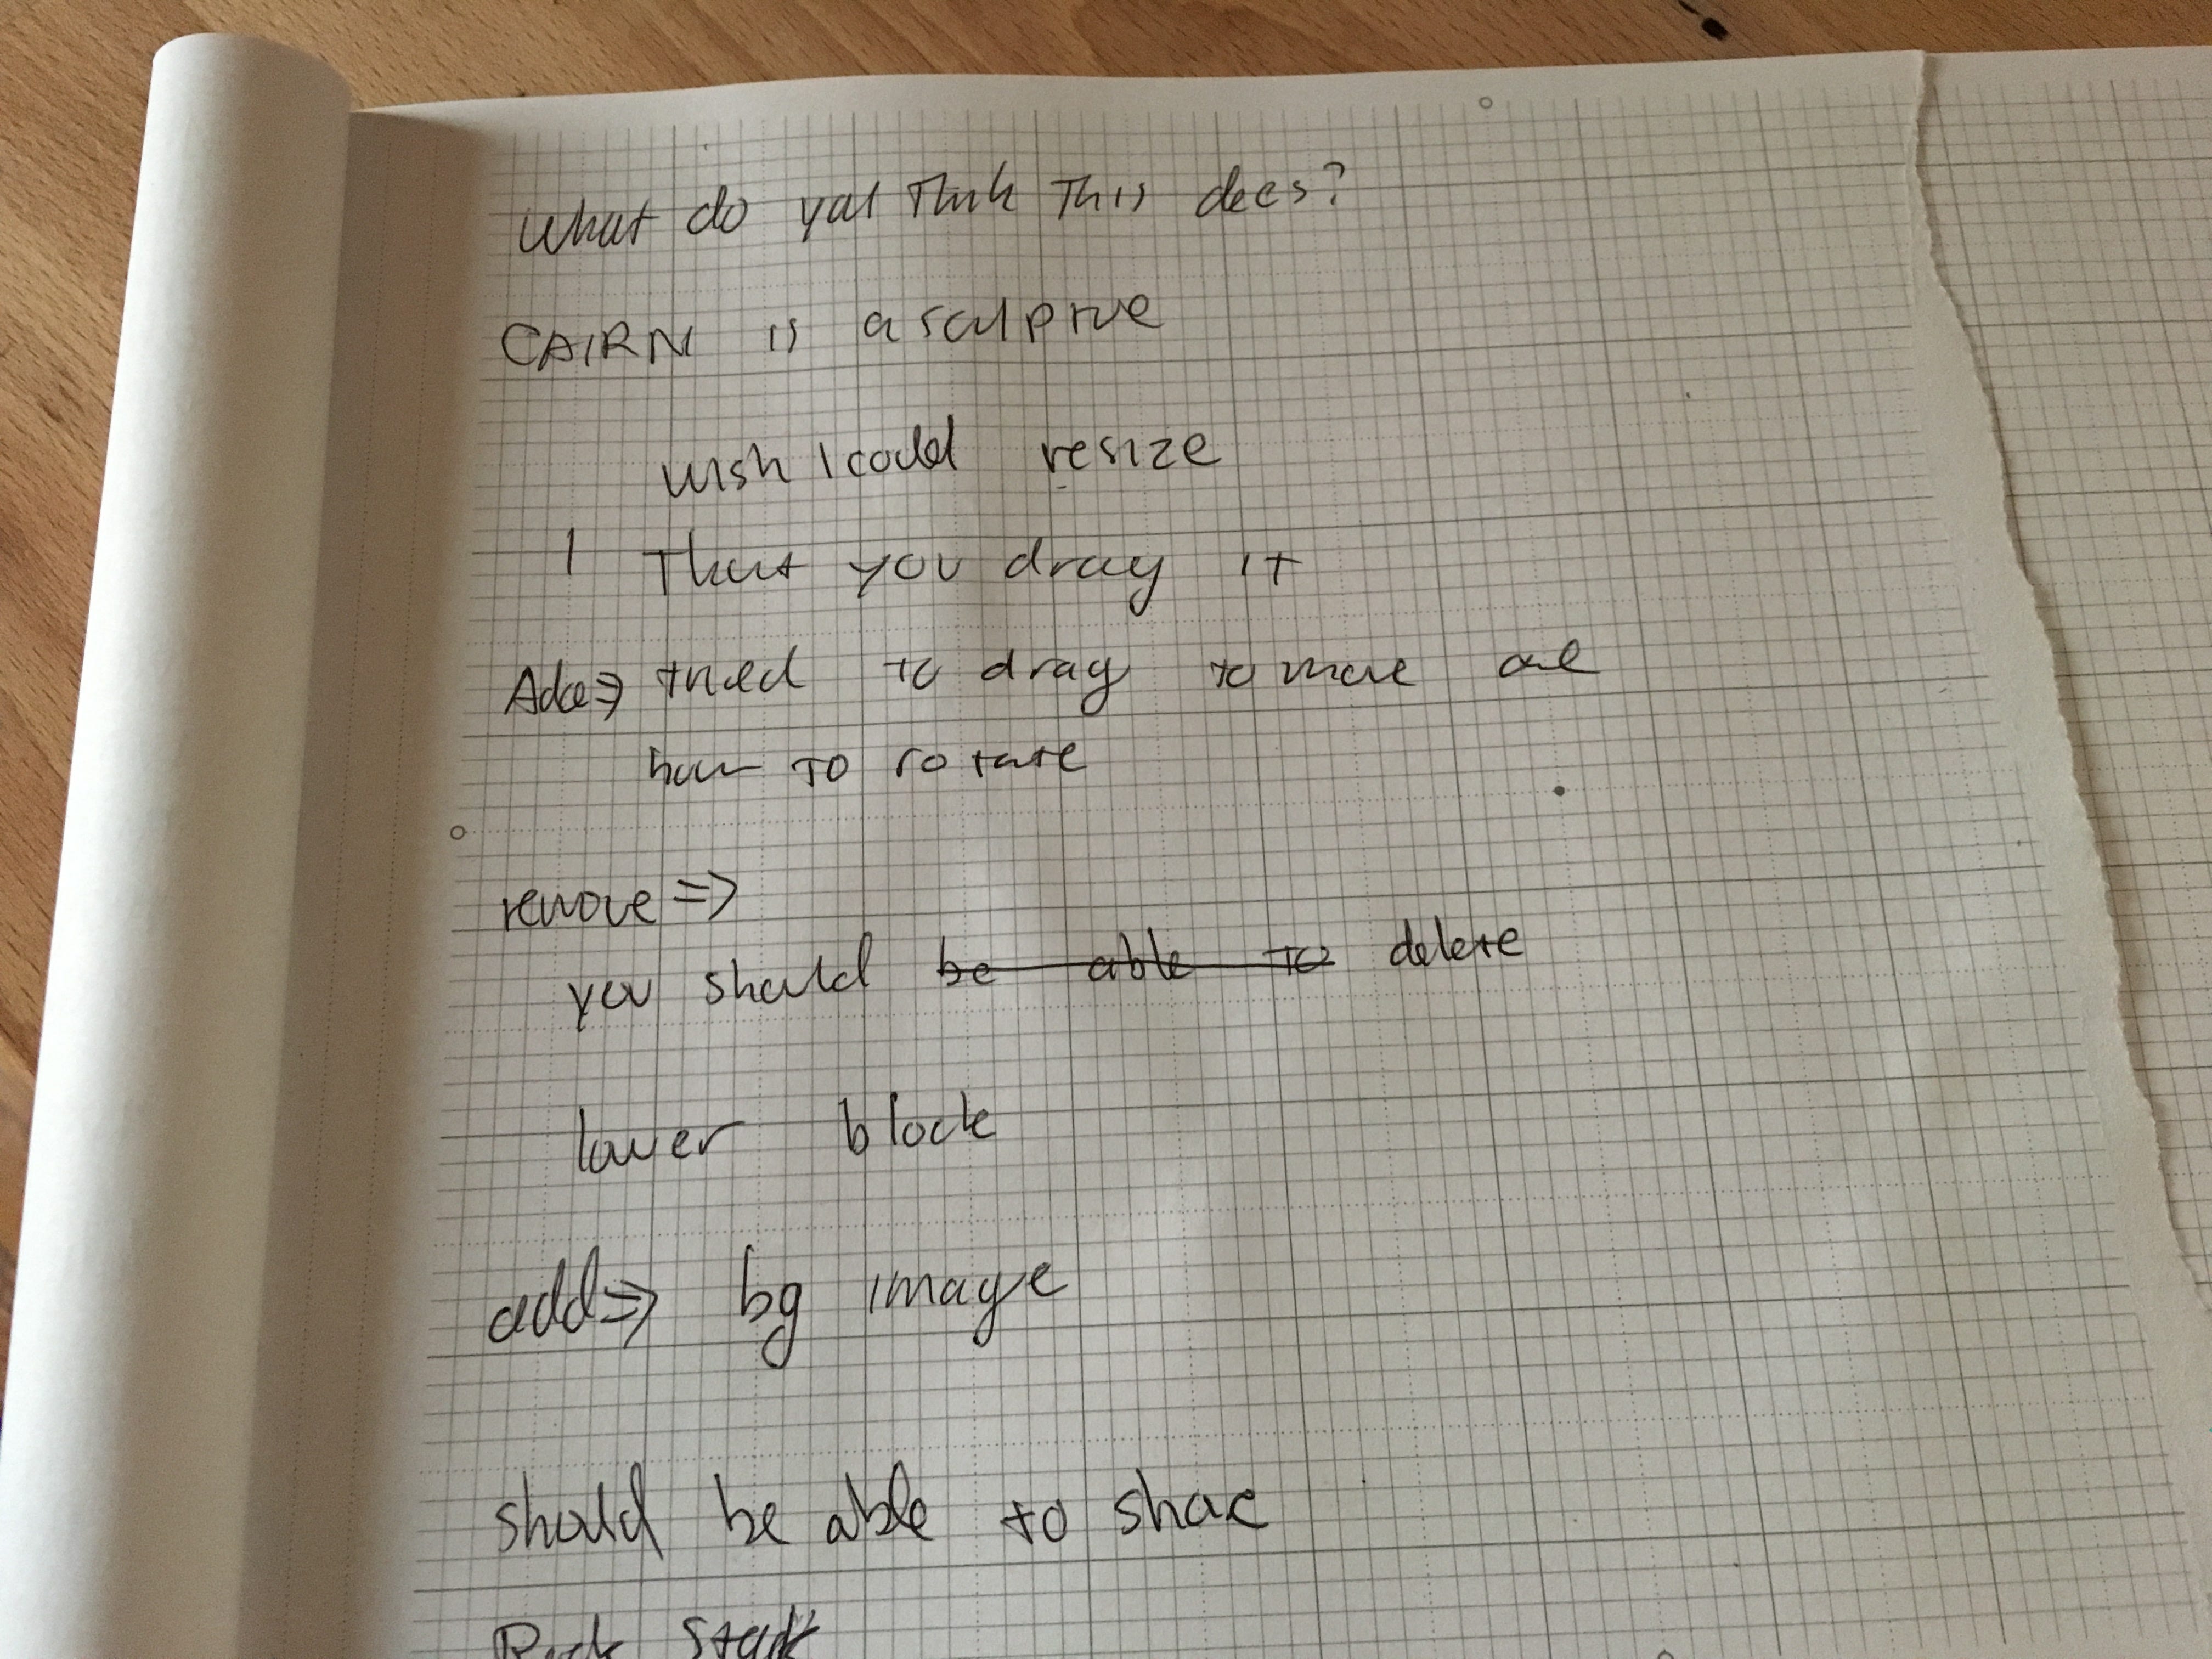 What do you think this does?
CAIRN is a sculpture
wish I could resize
1 That you drag it
tried to drag to move one
how to rotate
remove =>
you should be able to delete
lower block
add => bg image
should be able to share
Rock stack